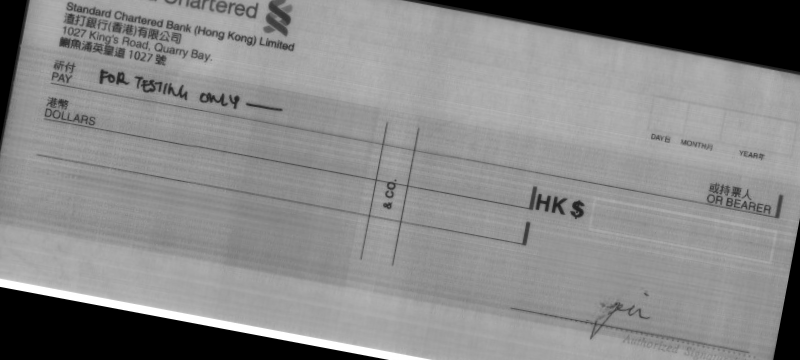 Chartered
Standard Chartered Bank (Hong Kong) Limited
渣打銀行(香港)有限公司
1027 King's Road, Quarry Bay.
鰂魚涌英皇道 1027 號
祈付
PAY FOR TESTING ONLY
港幣
DOLLARS
DAY日 MONTH月 YEAR年
或持票人
OR BEARER
& CO.
HK $
Authorized